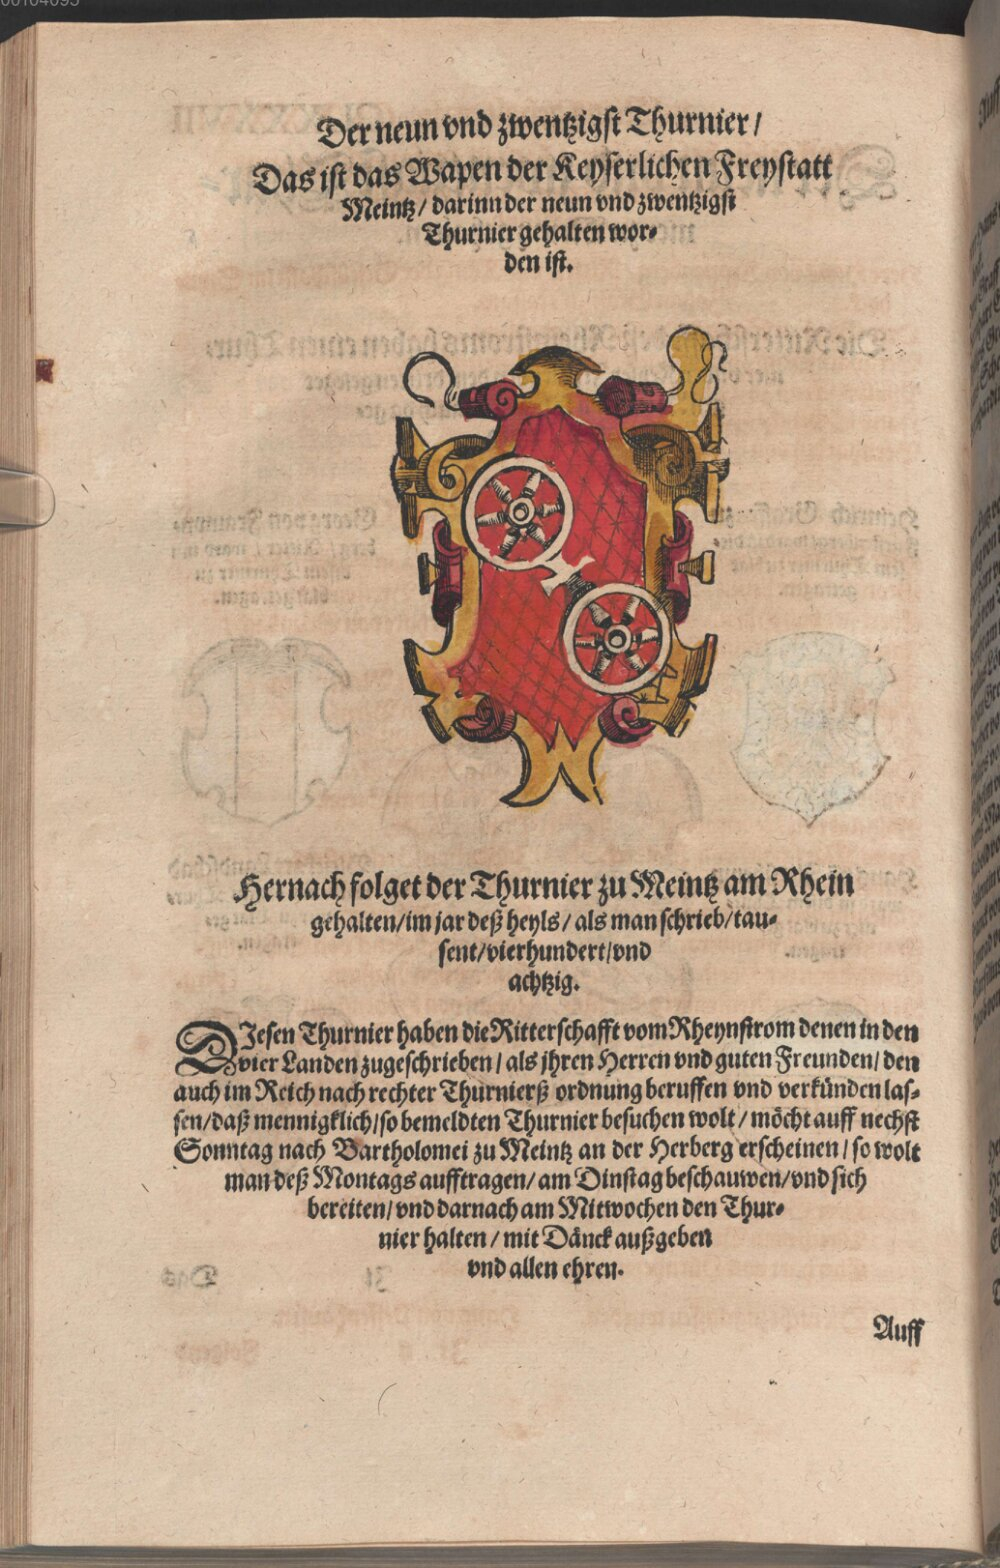 00104095
Der neun vnd zwentzigst Thurnier /
Das ist das Wapen der Keyserlichen Freystatt
Meintz / darinn der neun vnd zwentzigst
Thurnier gehalten wor-
den ist.
Hernach folget der Thurnier zu Meintz am Rhein
gehalten / im jar deß heyls / als man schrieb / tau-
sent / vierhundert / vnd
achtzig.
DJesen Thurnier haben die Ritterschafft vom Rheynstrom denen in den
vier Landen zugeschrieben / als jhren Herren vnd guten Freunden / den
auch im Reich nach rechter Thurnierß ordnung beruffen vnd verkünden las-
sen / daß mennigklich / so bemeldten Thurnier besuchen wolt / möcht auff nechst
Sonntag nach Bartholomei zu Meintz an der Herberg erscheinen / so wolt
man deß Montags aufftragen / am Dinstag beschauwen / vnd sich
bereiten / vnd darnach am Mitwochen den Thur-
nier halten / mit Dänck außgeben
vnd allen ehren.
Auff